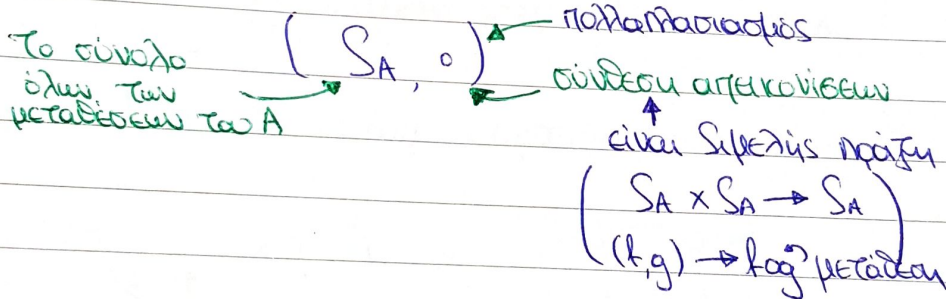 Το σύνολο
όλων των
μεταθέσεων του A
( S_A, ∘ )
πολλαπλασιασμός
σύνθεση απεικονίσεων
είναι διμελής πράξη
( S_A × S_A → S_A
(f,g) → fog ) μετάθεση